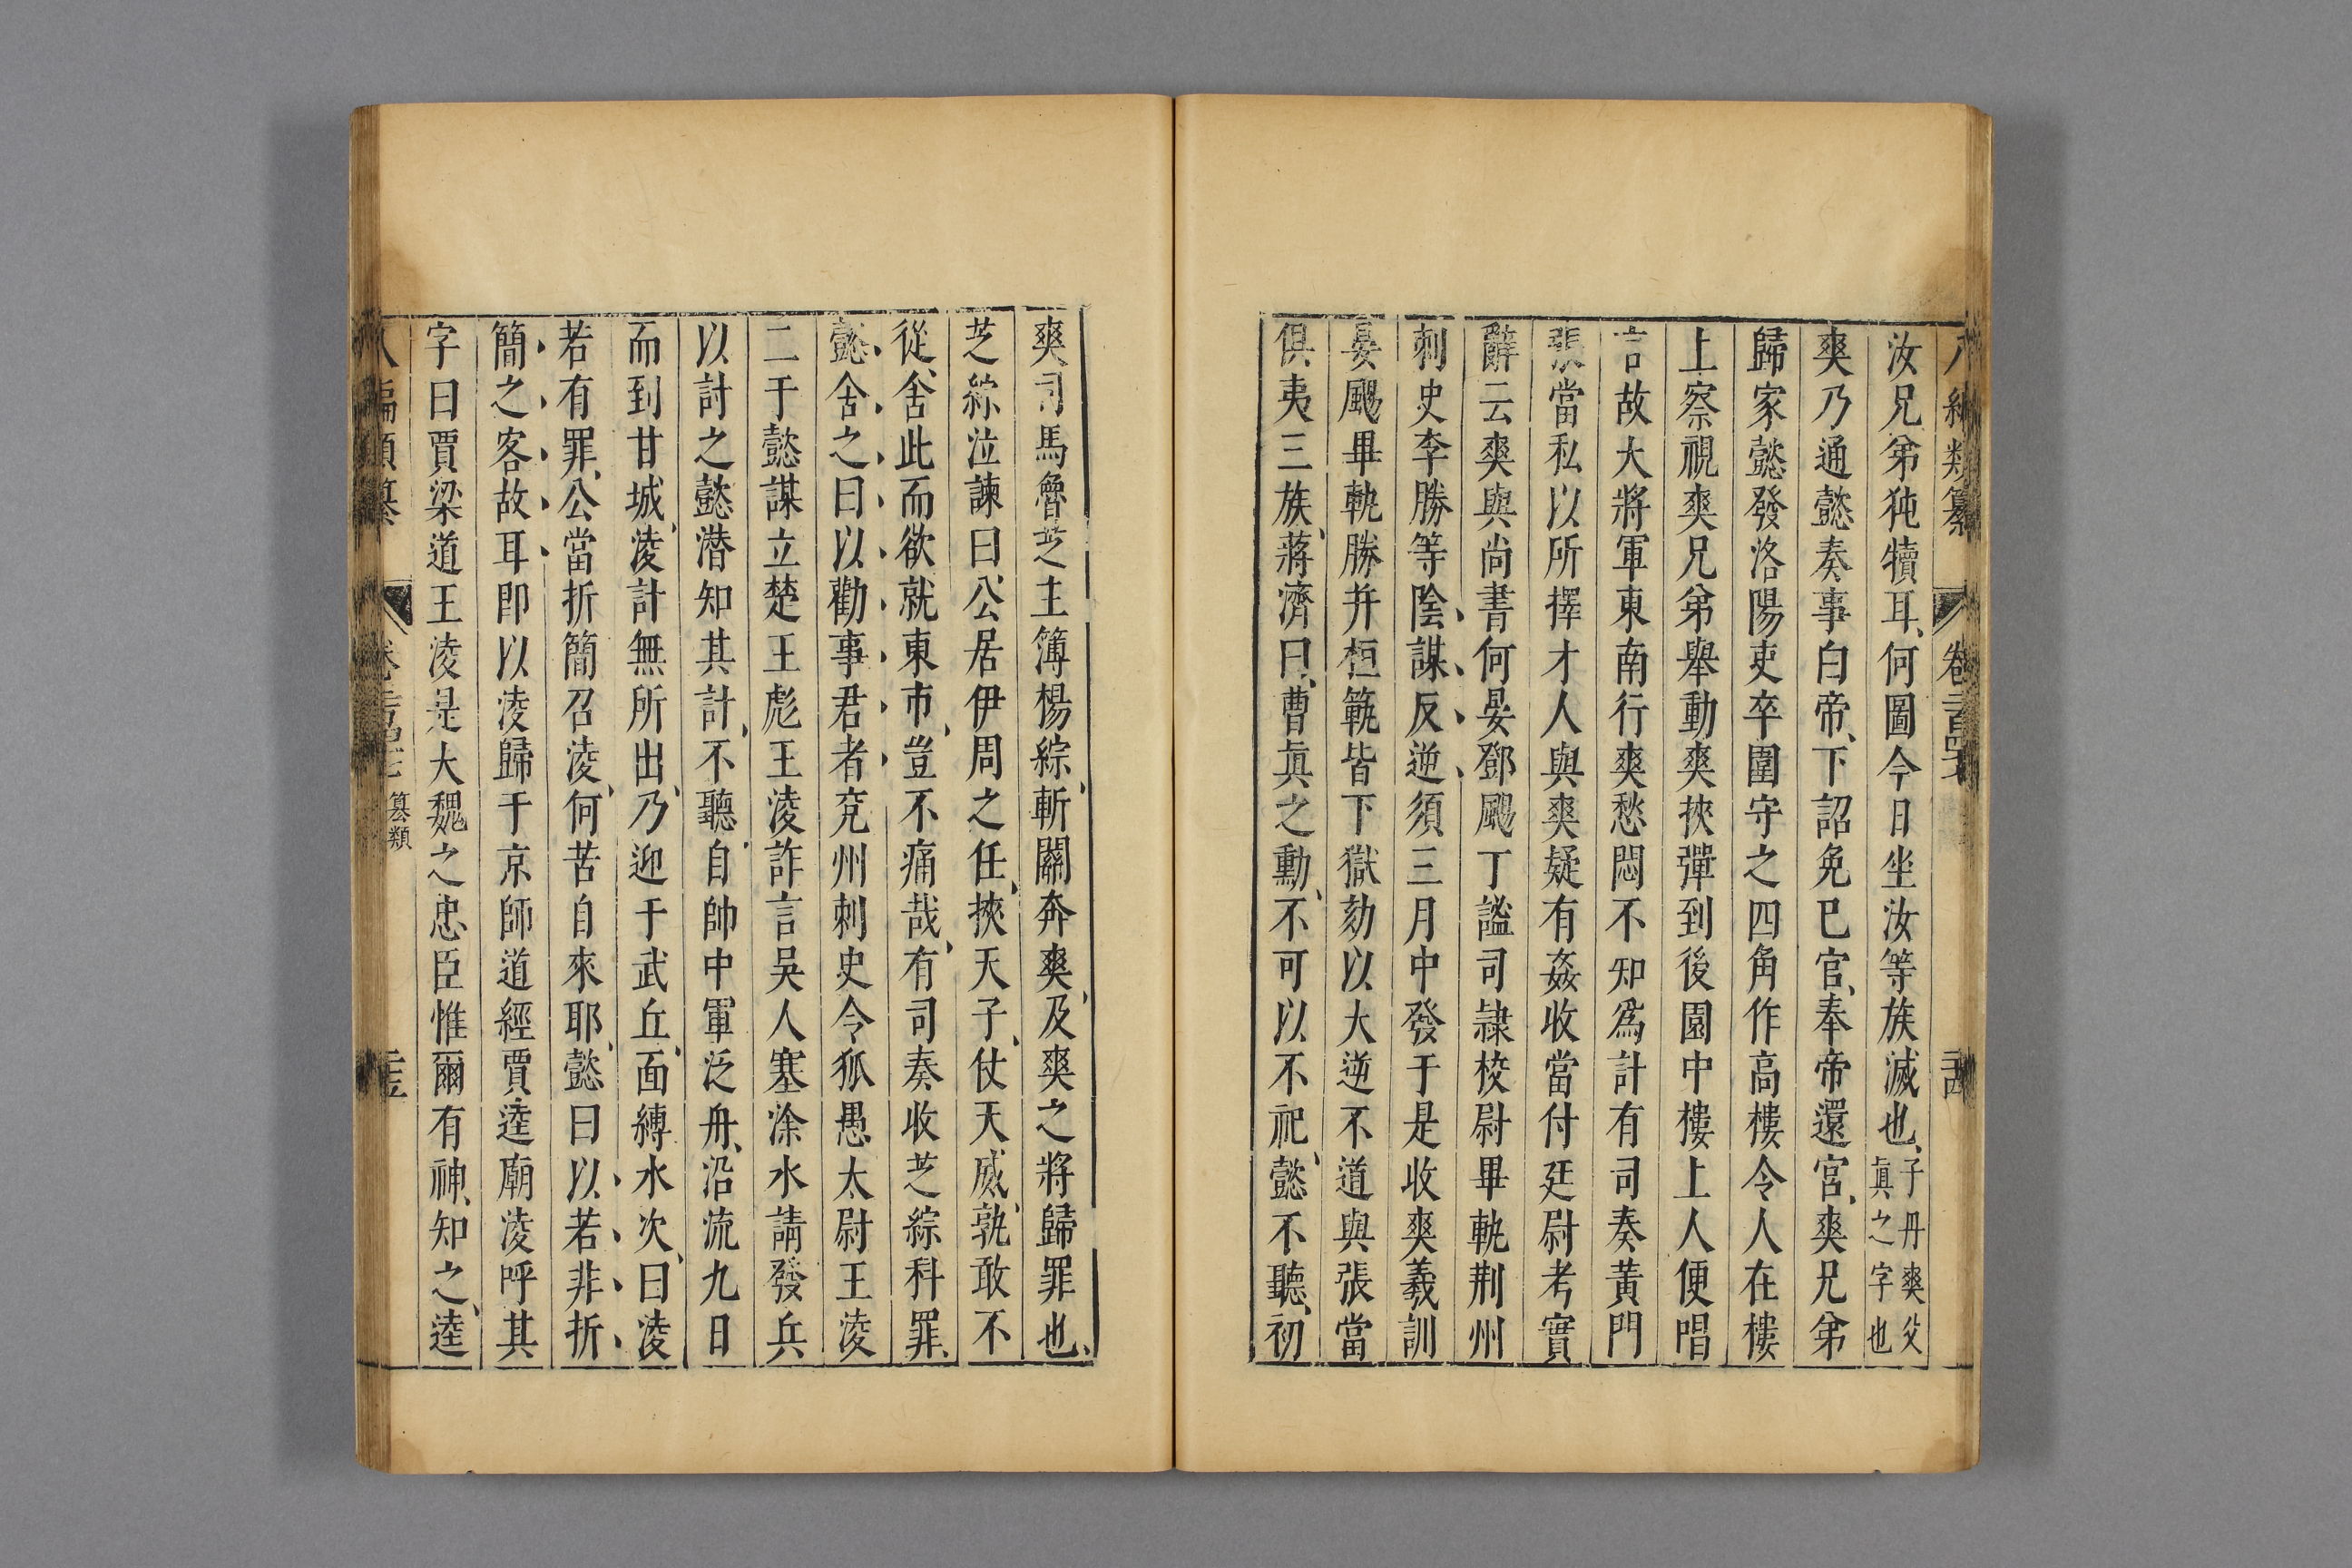 汝兄弟㹠犢耳何圖今日坐汝等族滅也子丹爽父眞之字也
爽乃通懿奏事白帝下詔免已官奉帝還宫爽兄弟
歸家懿發洛陽吏卒圍守之四角作高樓令人在樓
上察視爽兄弟舉動爽挾彈到後園中樓上人便唱
言故大將軍東南行爽愁悶不知爲計有司奏黃門
張當私以所擇才人與爽疑有姦收當付廷尉考實
辭云爽與尚書何晏鄧颺丁謐司隷校尉畢軌荆州
刺史李勝等陰謀反逆須三月中發于是收爽羲訓
晏颺畢軌勝并桓範皆下獄劾以大逆不道與張當
俱夷三族蔣濟曰曹眞之勳不可以不祀懿不聽初
爽司馬魯芝主簿楊綜斬關奔爽及爽之將歸罪也
芝綜泣諫曰公居伊周之任挾天子仗天威孰敢不
從舍此而欲就東市豈不痛哉有司奏收芝綜科罪
懿舍之曰以勸事君者兖州刺史令狐愚太尉王淩
二于懿謀立楚王彪王淩詐言吳人塞涂水請發兵
以討之懿潜知其計不聽自帥中軍泛舟沿流九日
而到甘城淩計無所出乃迎于武丘面縛水次曰淩
若有罪公當折簡召淩何苦自來耶懿曰以若非折
簡之客故耳即以淩歸于京師道經賈逵廟淩呼其
字曰賈梁道王淩是大魏之忠臣惟爾有神知之逵
八編類纂 卷 簒類